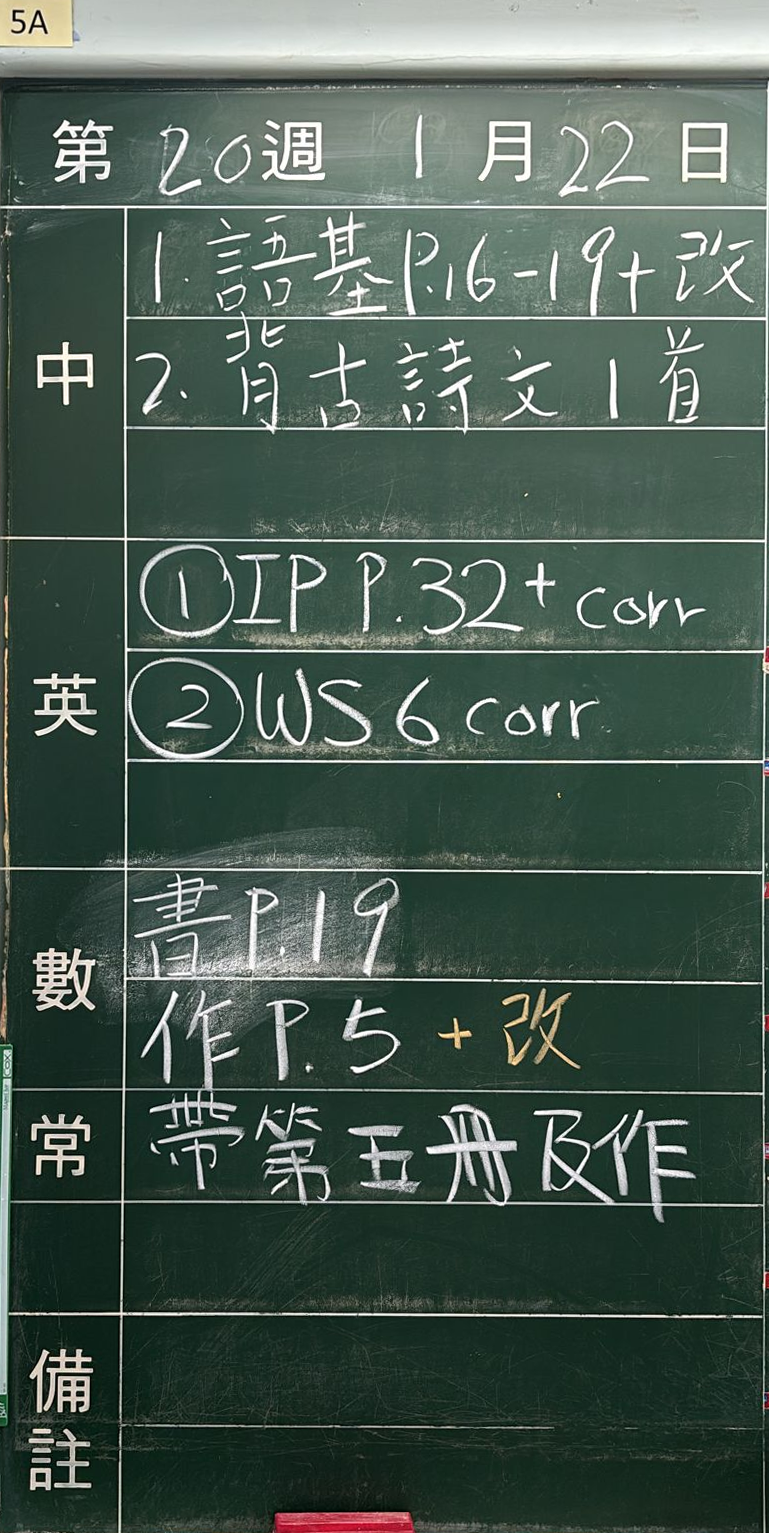 5A
第20週 1月22日
中
1. 語基P.16-19+改
2. 背古詩文1首
英
①IP P.32+corr
②WS 6 corr.
數
書P.19
作P.5 + 改
常
帶第五冊及作
備註